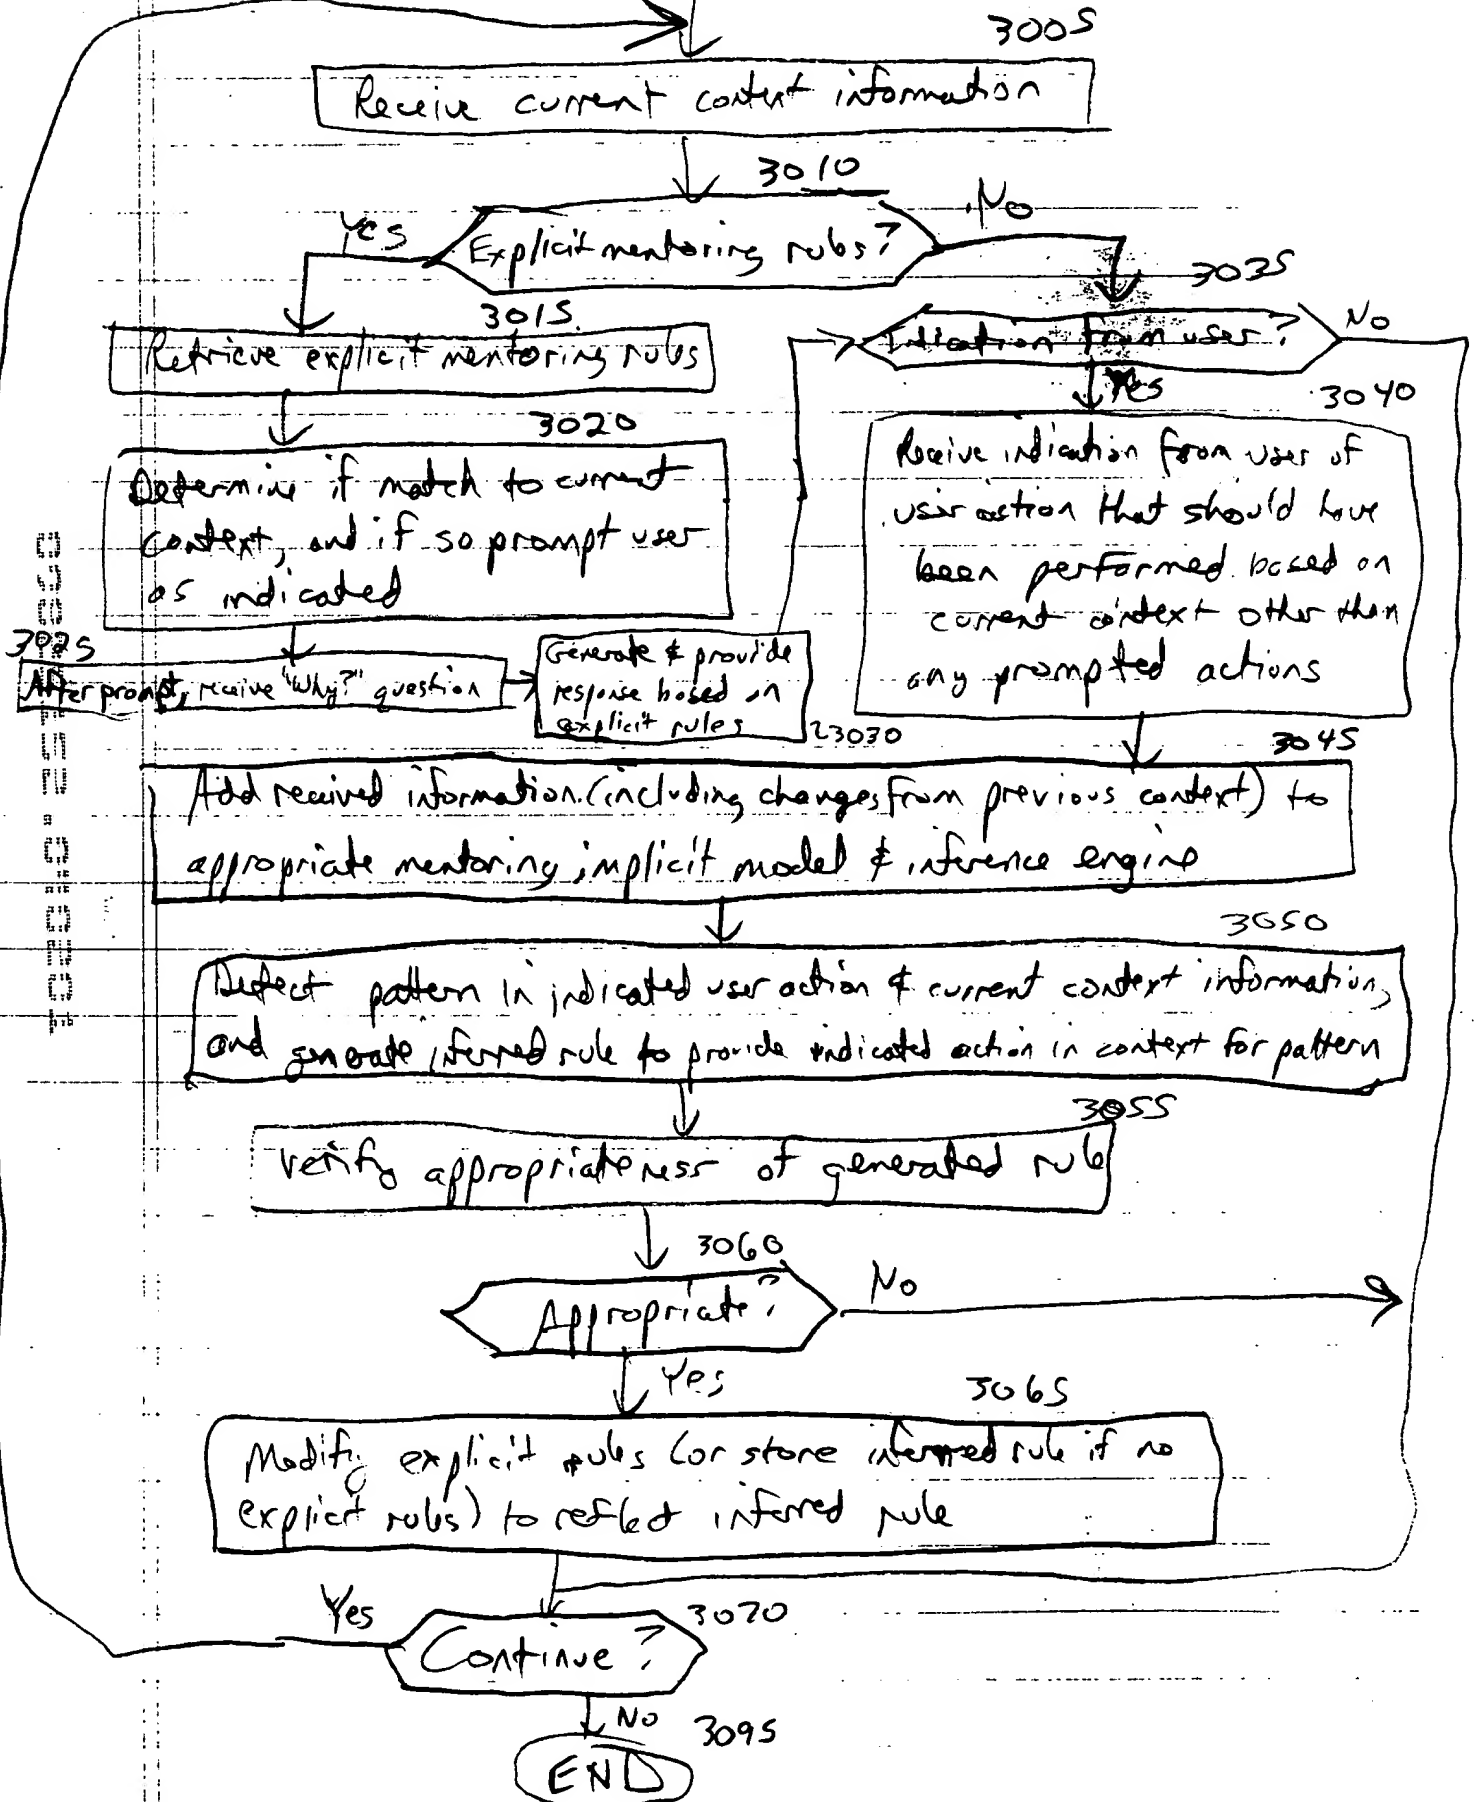 3005
Receive current context information
3010
Yes
No
Explicit mentoring rules?
3015
Retrieve explicit mentoring rules
3035
Indication from user?
No
Yes
3020
Determine if match to current
context, and if so prompt user
as indicated
3040
Receive indication from user of
user action that should have
been performed based on
current context other than
any prompted actions
3025
After prompt, receive "Why?" question
Generate & provide
response based on
explicit rules
3030
3045
Add received information (including changes from previous context) to
appropriate mentoring implicit model & inference engine
3050
Detect pattern in indicated user action & current context information,
and generate inferred rule to provide indicated action in context for pattern
3055
Verify appropriateness of generated rule
3060
Appropriate?
No
Yes
3065
Modify explicit rules (or store inferred rule if no
explicit rules) to reflect inferred rule
Yes
3070
Continue?
No
3095
END